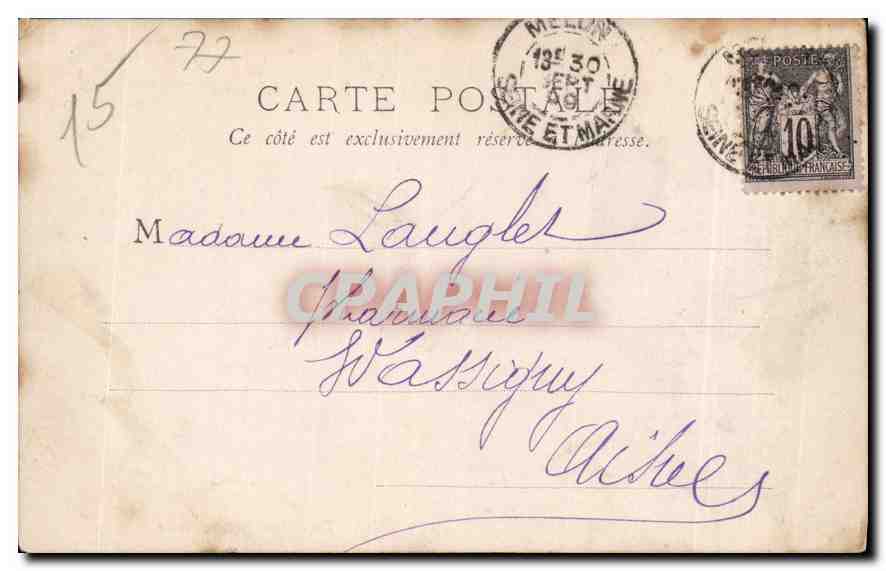 77
15
MELUN
13E 30
SEPT
SEINE ET MARNE
POSTE
10
REPUBLIQUE FRANÇAISE
SEINE
CARTE POSTALE
Ce côté est exclusivement réservé adresse.
Madame Langlet
CPAPHIL
Pharmacie
Wassigny
Aisne